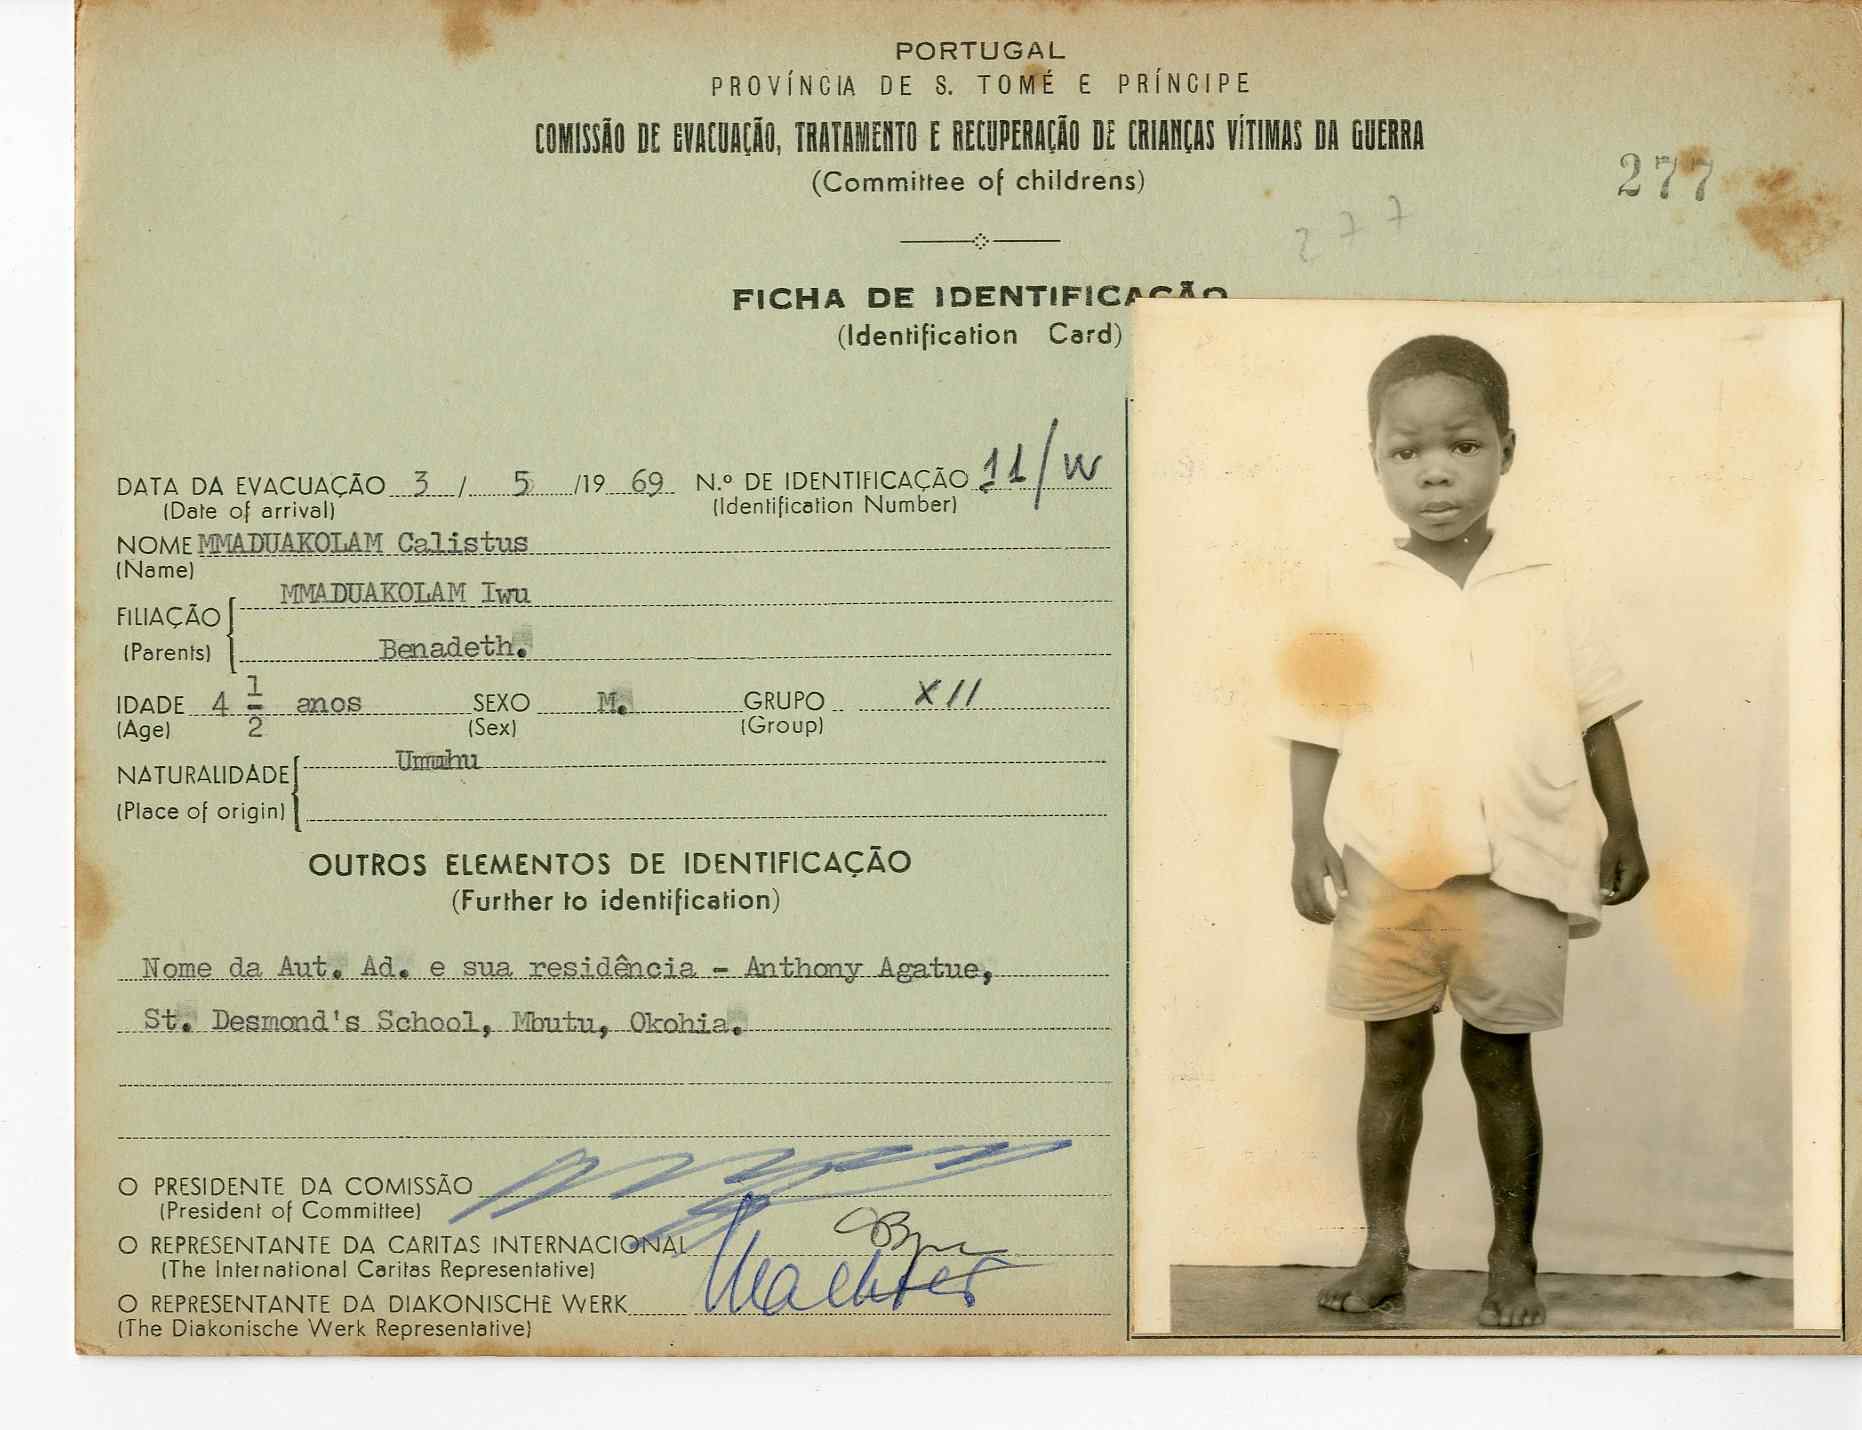 PORTUGAL
PROVÍNCIA DE S. TOMÉ E PRÍNCIPE
COMISSÃO DE EVACUAÇÃO, TRATAMENTO E RECUPERAÇÃO DE CRIANÇAS VÍTIMAS DA GUERRA
(Committee of childrens)
277
277
FICHA DE IDENTIFICAÇÃO
(Identification Card)
DATA DA EVACUAÇÃO 3 / 5 /19 69 N.º DE IDENTIFICAÇÃO 11/W
(Date of arrival) (Identification Number)
NOME MMADUAKOLAM Calistus
(Name)
MMADUAKOLAM Iwu
FILIAÇÃO
(Parents) Benadeth.
IDADE 4 1/2 anos SEXO M. GRUPO XII
(Age) (Sex) (Group)
Umuhu
NATURALIDADE
(Place of origin)
OUTROS ELEMENTOS DE IDENTIFICAÇÃO
(Further to identification)
Nome da Aut. Ad. e sua residência - Anthony Agatue,
St. Desmond's School, Mbutu, Okohia.
O PRESIDENTE DA COMISSÃO
(President of Committee)
O REPRESENTANTE DA CARITAS INTERNACIONAL
(The International Caritas Representative)
O REPRESENTANTE DA DIAKONISCHE WERK
(The Diakonische Werk Representative)